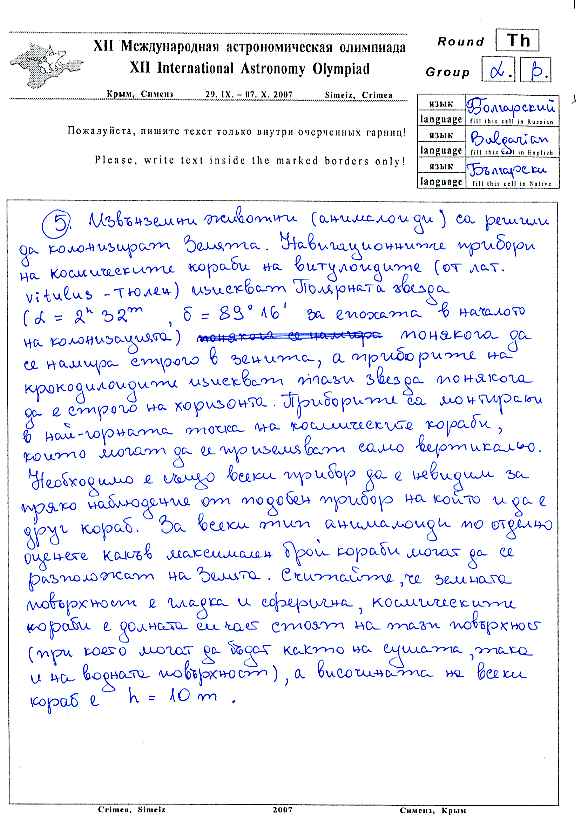 XII Международная астрономическая олимпиада
XII International Astronomy Olympiad
Round Th
Group α. β.
Крым, Симеиз 29. IX. – 07. X. 2007 Simeiz, Crimea
язык Болгарский
language fill this cell in Russian
язык Bulgarian
language fill this cell in English
язык Български
language fill this cell in Native
Пожалуйста, пишите текст только внутри очерченных гарниц!
Please, write text inside the marked borders only!
5. Извънземни животни (анималоиди) са решили
да колонизират Земята. Навигационните прибори
на космическите кораби на витулоидите (от лат.
vitulus - тюлен) изискват Полярната звезда
(α = 2h 32m, δ = 89° 16' за епохата в началото
на колонизацията) понякога се намира понякога да
се намира строго в зенита, а приборите на
крокодилоидите изискват тази звезда понякога
да е строго на хоризонта. Приборите са монтирани
в най-горната точка на космическите кораби,
които могат да се приземяват само вертикално.
Необходимо е също всеки прибор да е невидим за
пряко наблюдение от подобен прибор на който и да е
друг кораб. За всеки тип анималоиди по отделно
оценете какъв максимален брой кораби могат да се
разположат на Земята. Считайте, че земната
повърхност е гладка и сферична, космическите
кораби с долната си част стоят на тази повърхност
(при което могат да бъдат както на сушата, така
и на водната повърхност), а височината на всеки
кораб е h = 10 m.
Crimea, Simeiz 2007 Симеиз, Крым